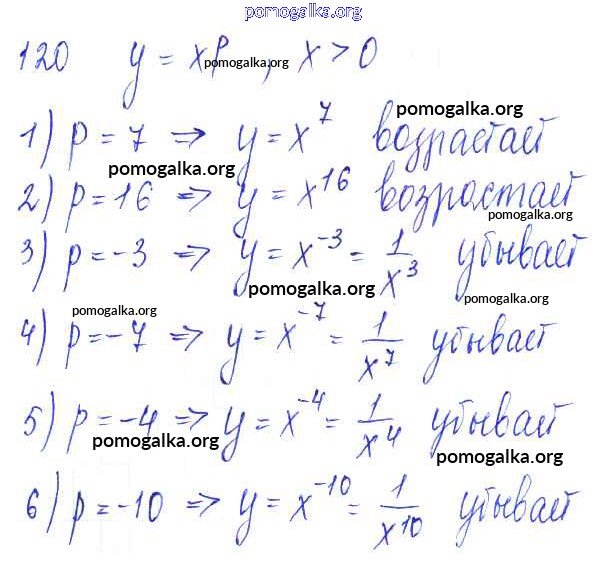 pomogalka.org
120 y = x^p, x > 0 pomogalka.org
1) p = 7 ⇒ y = x^7 возрастает pomogalka.org
pomogalka.org
2) p = 16 ⇒ y = x^16 возрастает pomogalka.org
3) p = -3 ⇒ y = x^-3 = 1/x^3 убывает
pomogalka.org pomogalka.org
pomogalka.org
4) p = -7 ⇒ y = x^-7 = 1/x^7 убывает
5) p = -4 ⇒ y = x^-4 = 1/x^4 убывает
pomogalka.org pomogalka.org
6) p = -10 ⇒ y = x^-10 = 1/x^10 убывает